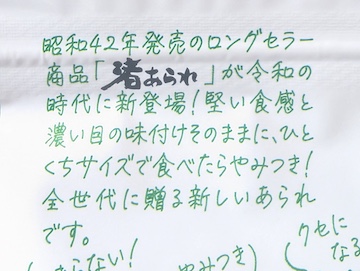 昭和42年発売のロングセラー
商品「渚あられ」が令和の
時代に新登場!堅い食感と
濃い目の味付けそのままに、ひと
くちサイズで食べたらやみつき!
全世代に贈る新しいあられ
です。
らない!
やみつき
クセに
なる